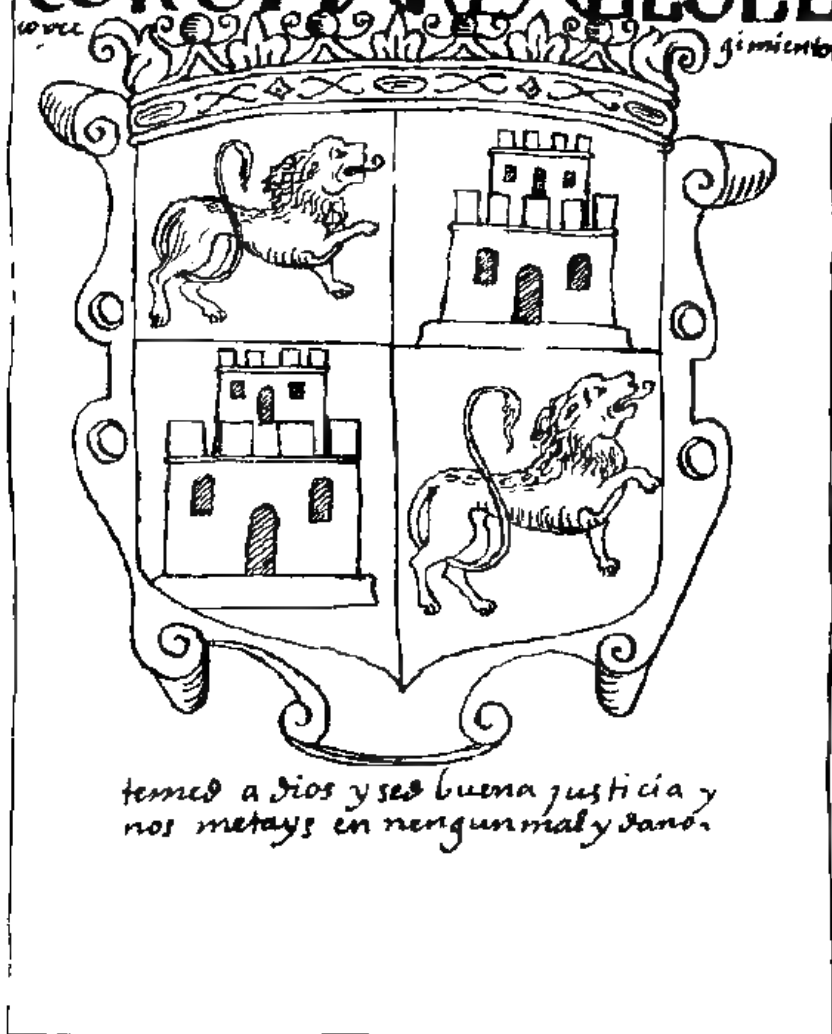 gimiento
temed a dios y sed buena justicia y
nos metays en nengun mal y dano.